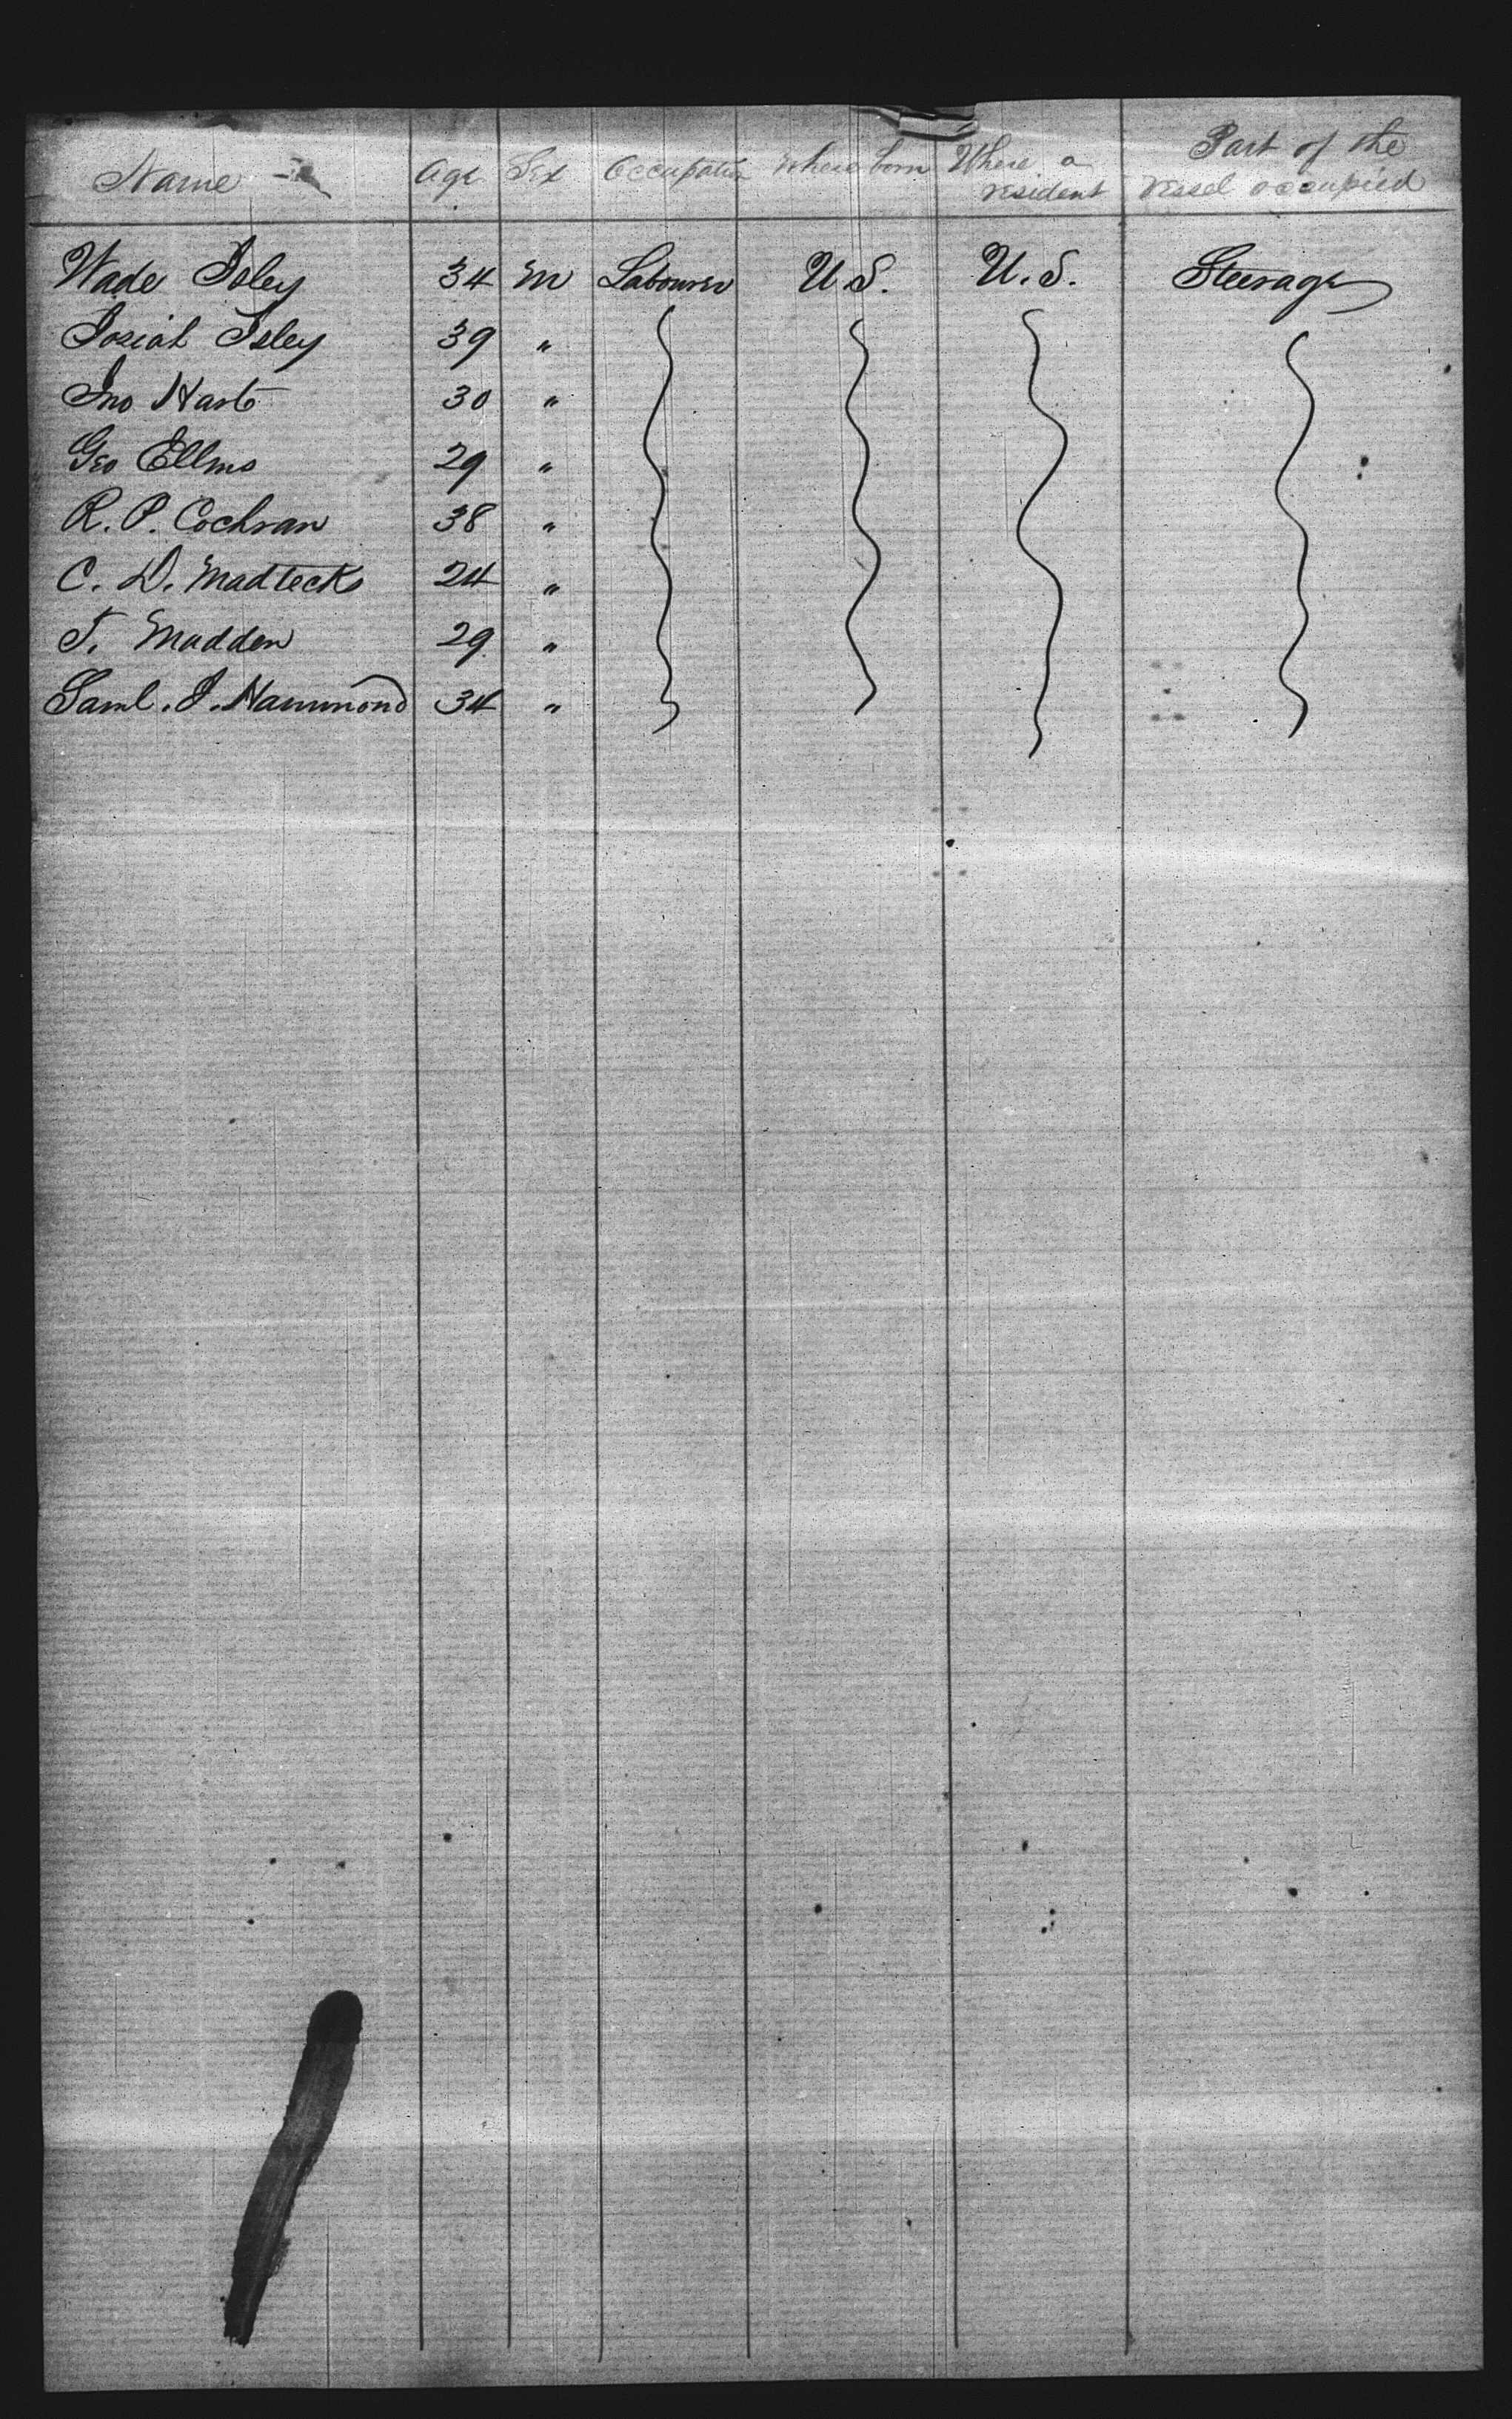 Name Age Sex Occupation Where born Where a resident Part of the vessel occupied
Wade Isley 34 M Labourer U.S. U.S. Steerage
Josiah Isley 39 "
Jno Hart 30 "
Geo Ellms 29 "
R. P. Cochran 38 "
C. D. Madtecks 24 "
T. Madden 29 "
Saml. J. Hammond 34 "